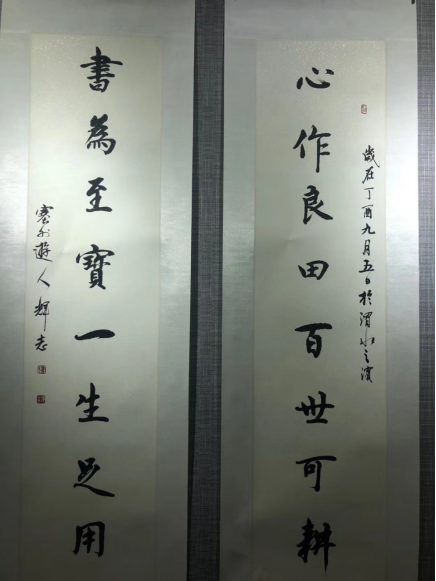 歲在丁酉九月五日於渭水之濱
心作良田百世可耕
書為至寶一生足用
塞外遊人輝志